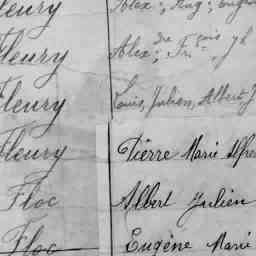 leury Alex: Aug: Eugè
leury Alex:dre Fr:çois
leury Louis, Julien, Albert J
leury Pierre Marie Alfre
Floc Albert Julien
Floc Eugène Marie